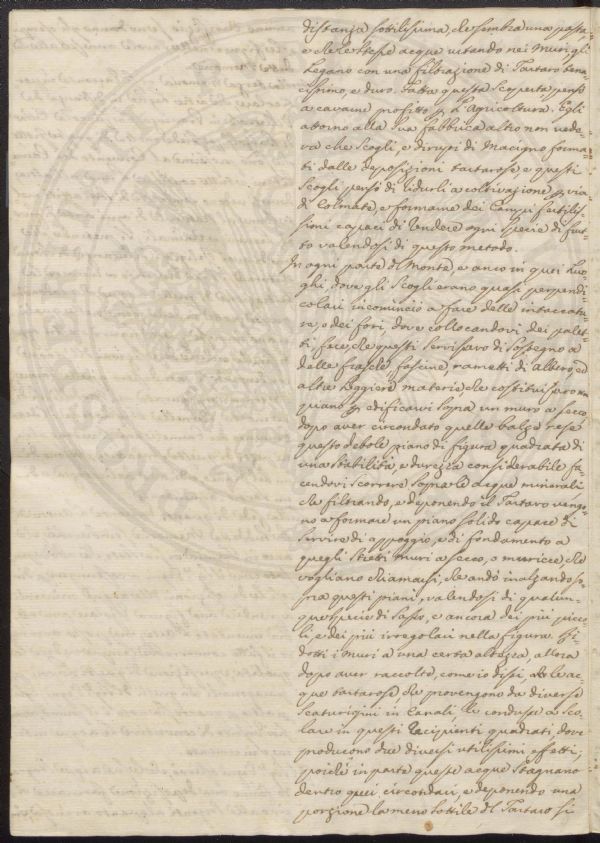 distanza sottilissima, che sembra una pasta
e che le stesse acque urtando nei Muri gli
legano con una filtrazione di Tartaro tena=
cissimo, e duro. Fatta questa scoperta pensò
a cavarne profitto p l'agricoltura. Egli
attorno alla sua fabbrica altro non vede=
va che Scogli, e dirupi di Macigno forma=
ti dalle deposizioni tartarose, e questi
Scogli pensò di ridurli a coltivazione p via
di Colmate, e formarne dei Campi fertilis=
simi capaci di rendere ogni specie di frut=
to valendosi di questo metodo.
In ogni parte di Monte, e anco in quei Luo=
ghi, dove gli Scogli erano quasi perpendi=
colari incominciò a fare delle intaccatu=
re, o dei fori, dove collocandovi dei palet=
ti, fece, che questi servissero di sostegno a
delle frasche, fascine, rametti di Albero, ed
altre leggiere materie che costituissero un
quadro p edificarvi sopra un muro a secco
dopo aver circondato quelle balze rese
questo debole piano di figura quadrata di
una stabilità, e durezza considerabile fa=
cendovi scorrere sopra le acque minerali,
che filtrando, e deponendo il Tartaro vengo=
no a formare un piano solido capace di
servire di appoggio, e di fondamento a
quegli stietti muri a secco, o muricce, che
vogliano chiamarsi, che andò inalzando so=
pra questi piani, valendosi di qualun=
que specie di Sasso, e ancora dei più picco=
li, e dei più irregolari nella figura. Ri=
dotti i Muri a una certa altezza, allora
dopo aver raccolto, come io dissi, le ac=
que tartarose, che provengono da diverse
Scaturigini in Canali, le condusse a sco=
lare in questi Recipienti quadrati, dove
producono due diversi utilissimi effetti;
poichè in parte queste acque stagnano
dentro quei circondari, e deponendo una
porzione la meno sottile del Tartaro si